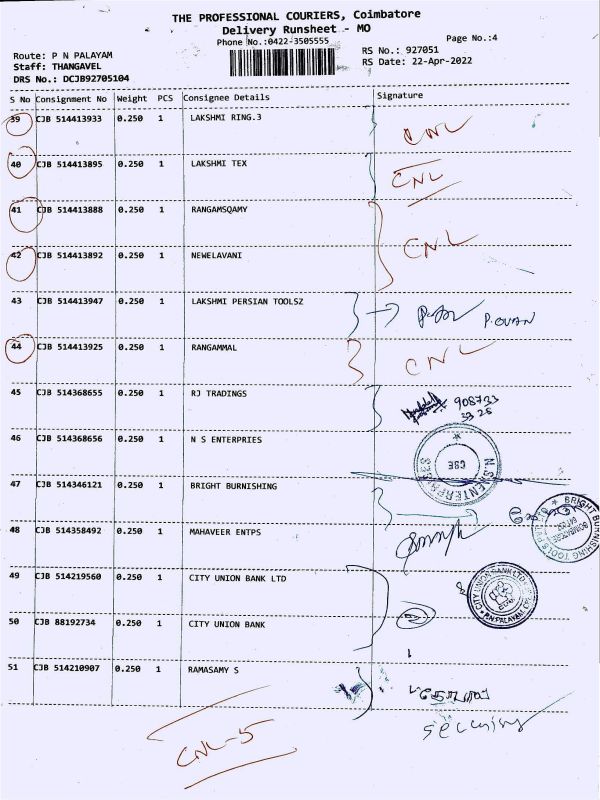 THE PROFESSIONAL COURIERS, Coimbatore
Delivery Runsheet - MO
Phone No.:0422-3505555
Page No.:4
Route: P N PALAYAM
RS No.: 927051
Staff: THANGAVEL
RS Date: 22-Apr-2022
DRS No.: DCJB92705104
S No Consignment No Weight PCS Consignee Details Signature
39 CJB 514413933 0.250 1 LAKSHMI RING.3 CNL
40 CJB 514413895 0.250 1 LAKSHMI TEX CNL
41 CJB 514413888 0.250 1 RANGAMSQAMY
CNL
42 CJB 514413892 0.250 1 NEWELAVANI
43 CJB 514413947 0.250 1 LAKSHMI PERSIAN TOOLSZ P.OVAN
44 CJB 514413925 0.250 1 RANGAMMAL CNL
45 CJB 514368655 0.250 1 RJ TRADINGS
46 CJB 514368656 0.250 1 N S ENTERPRIES
N.S. ENTERPRISES
CBE
47 CJB 514346121 0.250 1 BRIGHT BURNISHING
BRIGHT BURNISHING TOOLS
48 CJB 514358492 0.250 1 MAHAVEER ENTPS
49 CJB 514219560 0.250 1 CITY UNION BANK LTD
CITY UNION BANK LTD
P.N.PALAYAM
50 CJB 88192734 0.250 1 CITY UNION BANK
51 CJB 514210907 0.250 1 RAMASAMY S
CNL-5